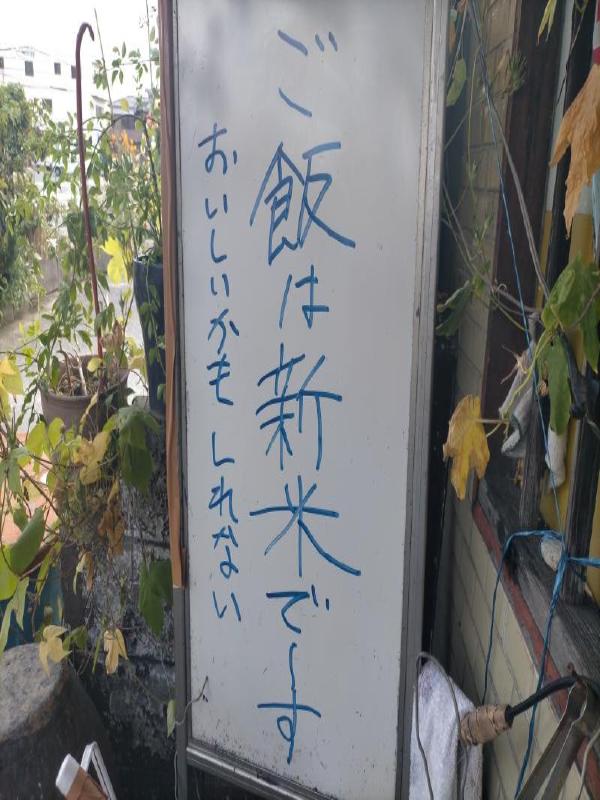 ご飯は新米で〜す
おいしいかもしれない